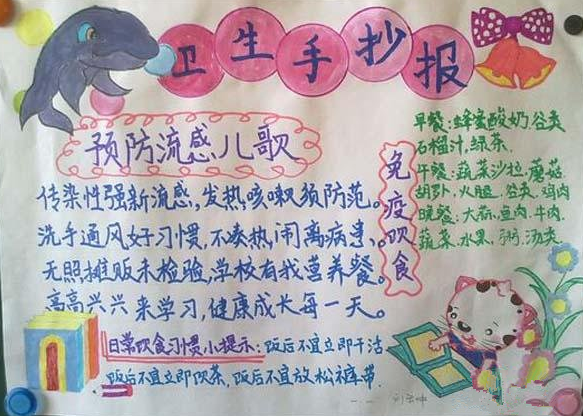 卫生手抄报
预防流感儿歌
传染性强新流感,发热咳嗽须防范。
洗手通风好习惯,不凑热闹离病患。
无照摊贩未检验,学校有我营养餐。
高高兴兴来学习,健康成长每一天。
免疫饮食
早餐:蜂蜜酸奶,谷类
石榴汁,绿茶.
午餐:蔬菜沙拉,蘑菇
胡卜,火腿,谷类,鸡肉
晚餐:大蒜,鱼肉,牛肉.
蔬菜,水果,粥,汤类
日常饮食习惯小提示:饭后不宜立即干活
饭后不宜立即饮茶,饭后不宜放松裤带